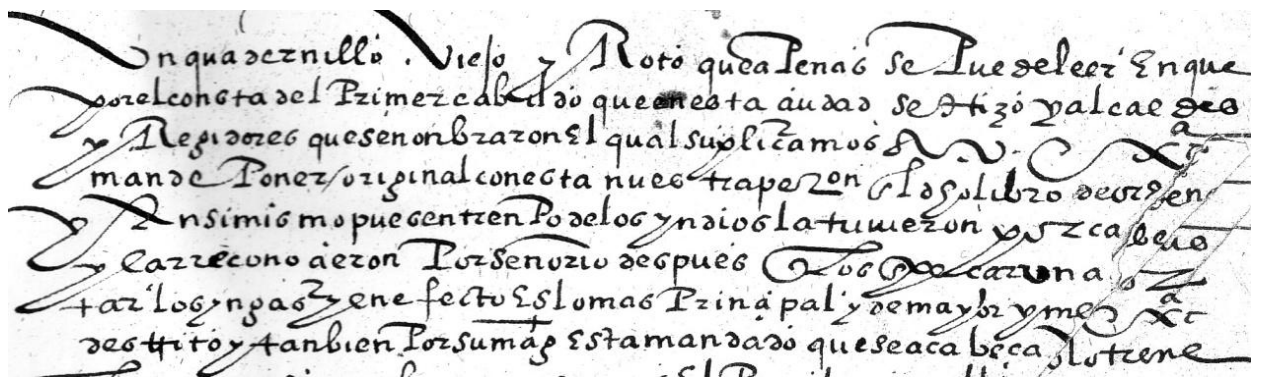 Un quadernillo Viejo y Roto que a Penas se Puede leer En que
por el consta del Primer cabildo que en esta ciudad se Hizo y alcaldes
y Regidores que se nonbraron El qual suplicamos a V.
mande Poner original con esta nuestra peon libro de
Ansi mismo pues en trenPo de los yndios la tuvieron por cabeça
y la rreconocieron Por señorio despues los
los yngas y en efecto Es lo mas Prinçipal y de mayor y mejor
destrito y tanbien Por su mag Esta mandado que sea cabeça y lo tiene